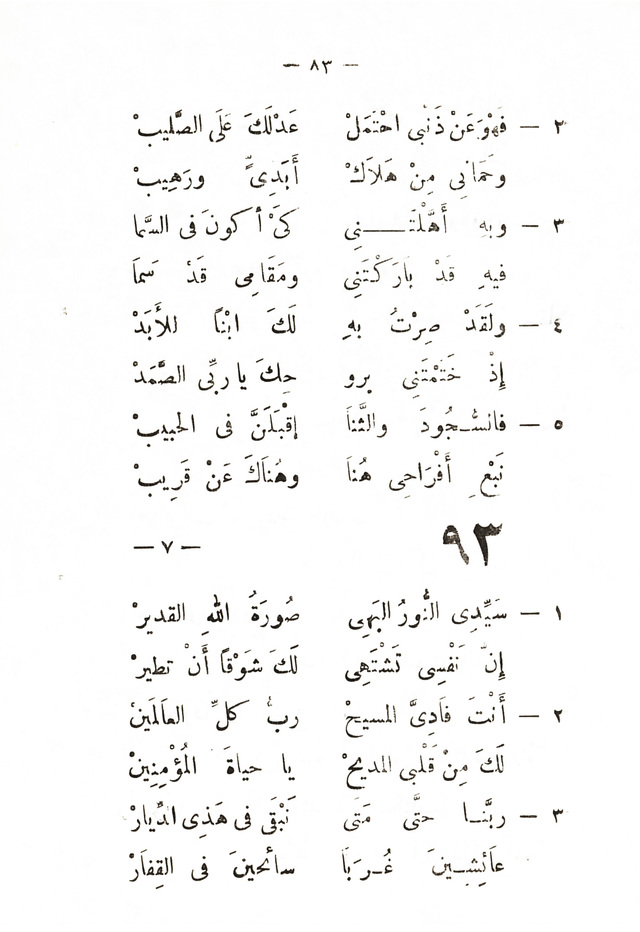 — ٨٣ —
٢ — فَهْوَ عَنْ ذَنْبِي احْتَمَلْ عَدْلَكَ عَلَى الصَّلِيبْ
وَحَمَانِي مِنْ هَلاَكْ أَبَدِىٍّ وَرَهِيبْ
٣ — وبِهِ أَهَّلْتَـــنِي كَىْ أكونَ فى السَّما
فيهِ قَدْ بارَكْتَنِي ومَقَامِى قَدْ سَمَا
٤ — ولَقَدْ صِرْتُ بهِ لَكَ ابْنًا للأَبَدْ
إِذْ خَتَمْتَنِي برو حِكَ يا ربِّى الصَّمَدْ
٥ — فانسُّـجُودَ والثَّنَا إقْبَلَنَّ فى الحبيبْ
نَبْعِ أَفْرَاحِى هُنَا وهُنَاكَ عَنْ قَرِيبْ
٩٣ — ٧ —
١ — سَيِّدِى النُّورُ البَهِى صُورَةُ اللهِ القديرْ
إِنَّ نَفْسِى تَشْتَهِى لَكَ شَوْقًا أَنْ تطيرْ
٢ — أَنْتَ فَادِىَّ المسيحْ ربُّ كلِّ العَالَمينْ
لَكَ مِنْ قَلْبِى المديحْ يا حياةَ المُؤْمِنِينْ
٣ — ربَّنـا حتَّى مَتَى نَبْقَى فى هَذِى الدِّيارْ
عَائِشِـينَ غُـرَبَا سائحينَ فى القِفَارْ